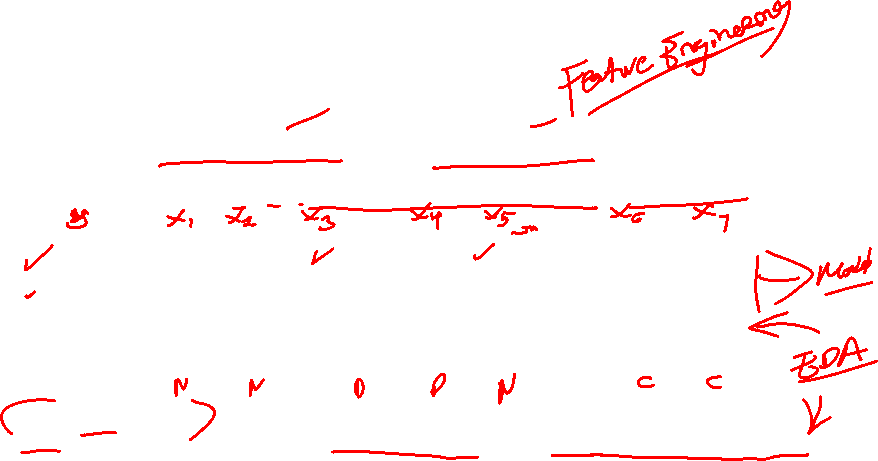 Feature Engineering
X1 X2 X3 X4 X5 X6 X7
Model
EDA
N N D D N C C